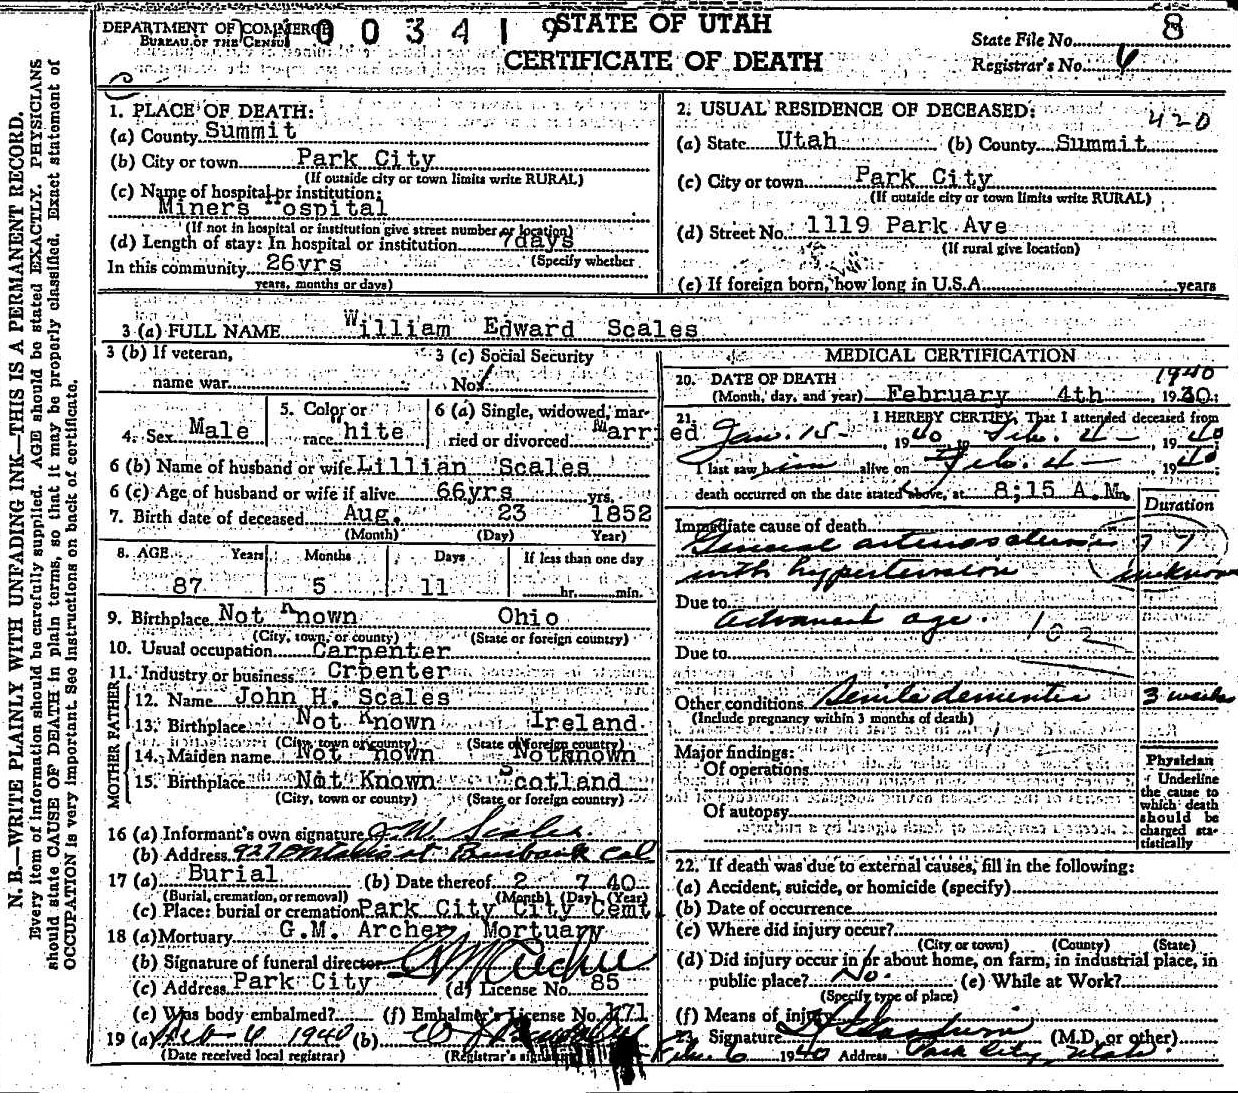 DEPARTMENT OF COMMERCE
BUREAU OF THE CENSUS
003419
STATE OF UTAH
CERTIFICATE OF DEATH
State File No. 8
Registrar's No. 6
N. B.—WRITE PLAINLY WITH UNFADING INK—THIS IS A PERMANENT RECORD.
Every item of information should be carefully supplied. AGE should be stated EXACTLY. PHYSICIANS
should state CAUSE OF DEATH in plain terms, so that it may be properly classified. Exact statement of
OCCUPATION is very important. See instructions on back of certificate.
1. PLACE OF DEATH:
(a) County Summit
(b) City or town Park City
(If outside city or town limits write RURAL)
(c) Name of hospital or institution:
Miners ospital
(If not in hospital or institution give street number or location)
(d) Length of stay: In hospital or institution 7days
(Specify whether
In this community 26yrs
years, months or days)
2. USUAL RESIDENCE OF DECEASED:
420
(a) State Utah (b) County Summit
(c) City or town Park City
(If outside city or town limits write RURAL)
(d) Street No. 1119 Park Ave
(If rural give location)
(e) If foreign born, how long in U.S.A. years
3 (a) FULL NAME William Edward Scales
3 (b) If veteran,
name war
3 (c) Social Security
No.
4. Sex Male
5. Color or
race hite
6 (a) Single, widowed, mar-
ried or divorced Married
6 (b) Name of husband or wife Lillian Scales
6 (c) Age of husband or wife if alive 66yrs yrs.
7. Birth date of deceased Aug. 23 1852
(Month) (Day) Year)
8. AGE Years Months Days If less than one day
87 5 11 hr. min.
9. Birthplace Not nown Ohio
(City, town, or county) (State or foreign country)
10. Usual occupation Carpenter
11. Industry or business Crpenter
FATHER
12. Name John H. Scales
13. Birthplace Not Known Ireland
(City, town or county) (State or foreign country)
MOTHER
14. Maiden name Not nown Notknown
15. Birthplace Not Known Scotland
(City, town or county) (State or foreign country)
16 (a) Informant's own signature W. Scales
(b) Address Burbank Cal
17 (a) Burial (b) Date thereof 2 7 40
(Burial, cremation, or removal) (Month) (Day) (Year)
(c) Place: burial or cremation Park City City Cemt.
18 (a) Mortuary G.M. Archer Mortuary
(b) Signature of funeral director G M Archer
(c) Address Park City (d) License No. 85
(e) Was body embalmed? (f) Embalmer's License No. 171
19 (a) Feb 6 1940 (b)
(Date received local registrar) (Registrar's signature)
MEDICAL CERTIFICATION
20. DATE OF DEATH 1940
(Month, day, and year) February 4th, 1930:
21. I HEREBY CERTIFY, That I attended deceased from
Jan. 15 - , 1940 to Feb. 4 - , 1940
I last saw him alive on Feb. 4 - , 1940;
death occurred on the date stated above, at 8;15 A.M.
Duration
Immediate cause of death
General arteriosclerosis ??
with hypertension unknown
Due to
Advanced age. 102
Due to
Other conditions Senile dementia 3 weeks
(Include pregnancy within 3 months of death)
Major findings:
Of operations
Of autopsy
Physician
Underline
the cause to
which death
should be
charged sta-
tistically
22. If death was due to external causes, fill in the following:
(a) Accident, suicide, or homicide (specify)
(b) Date of occurrence
(c) Where did injury occur?
(City or town) (County) (State)
(d) Did injury occur in or about home, on farm, in industrial place, in
public place? No. (e) While at Work?
(Specify type of place)
(f) Means of injury
23. Signature (M.D. or other)
Feb. 6 1940 Address Park City, Utah.